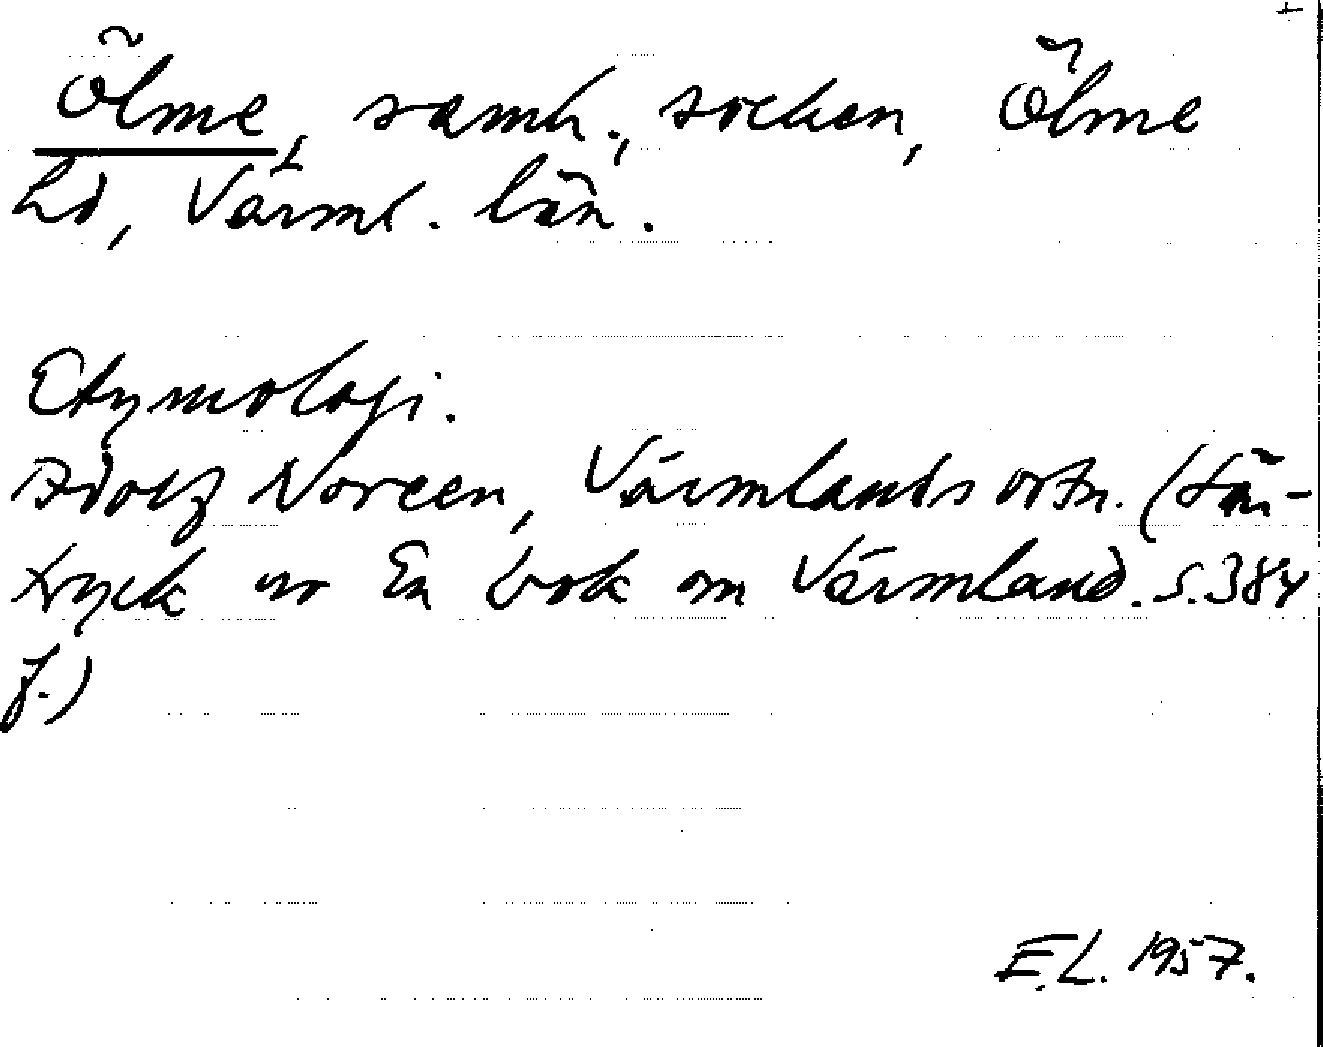 Ölme, samh., socken, Ölme
hd, Värml. län.
Etymologi.
Adolf Noreen, Värmlands ortn. (Sär-
tryck ur En bok om Värmland. s. 384
f.)
E.L. 1957.